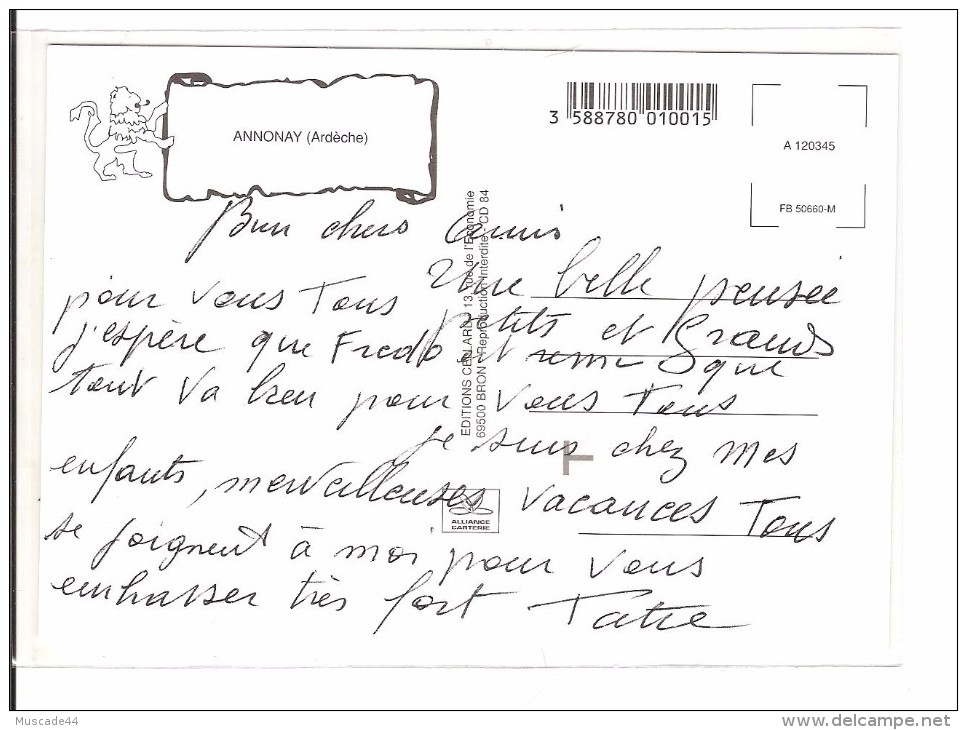 ANNONAY (Ardèche)
3 588780 010015
A 120345
FB 50660-M
EDITIONS CELLARD - 13, rue de l'Economie
69500 BRON - Reproduction Interdite - CD 84
chers Amis
Une belle pensée
pour vous Tous petits et Grands
j'espère que Fredo est remis que
tout va bien pour vous Tous
je suis chez mes
enfants, merveilleuses vacances Tous
se joignent à moi pour vous
embrasser très fort
ALLIANCE
CARTERIE
Muscade44
www.delcampe.net